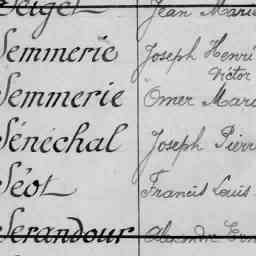 Jean Marie
Semmerie Joseph Henri
Victor
Semmerie Omer Marc
Sénéchal Joseph Pierr
Séot Francis Louis
Serandour Alexandre